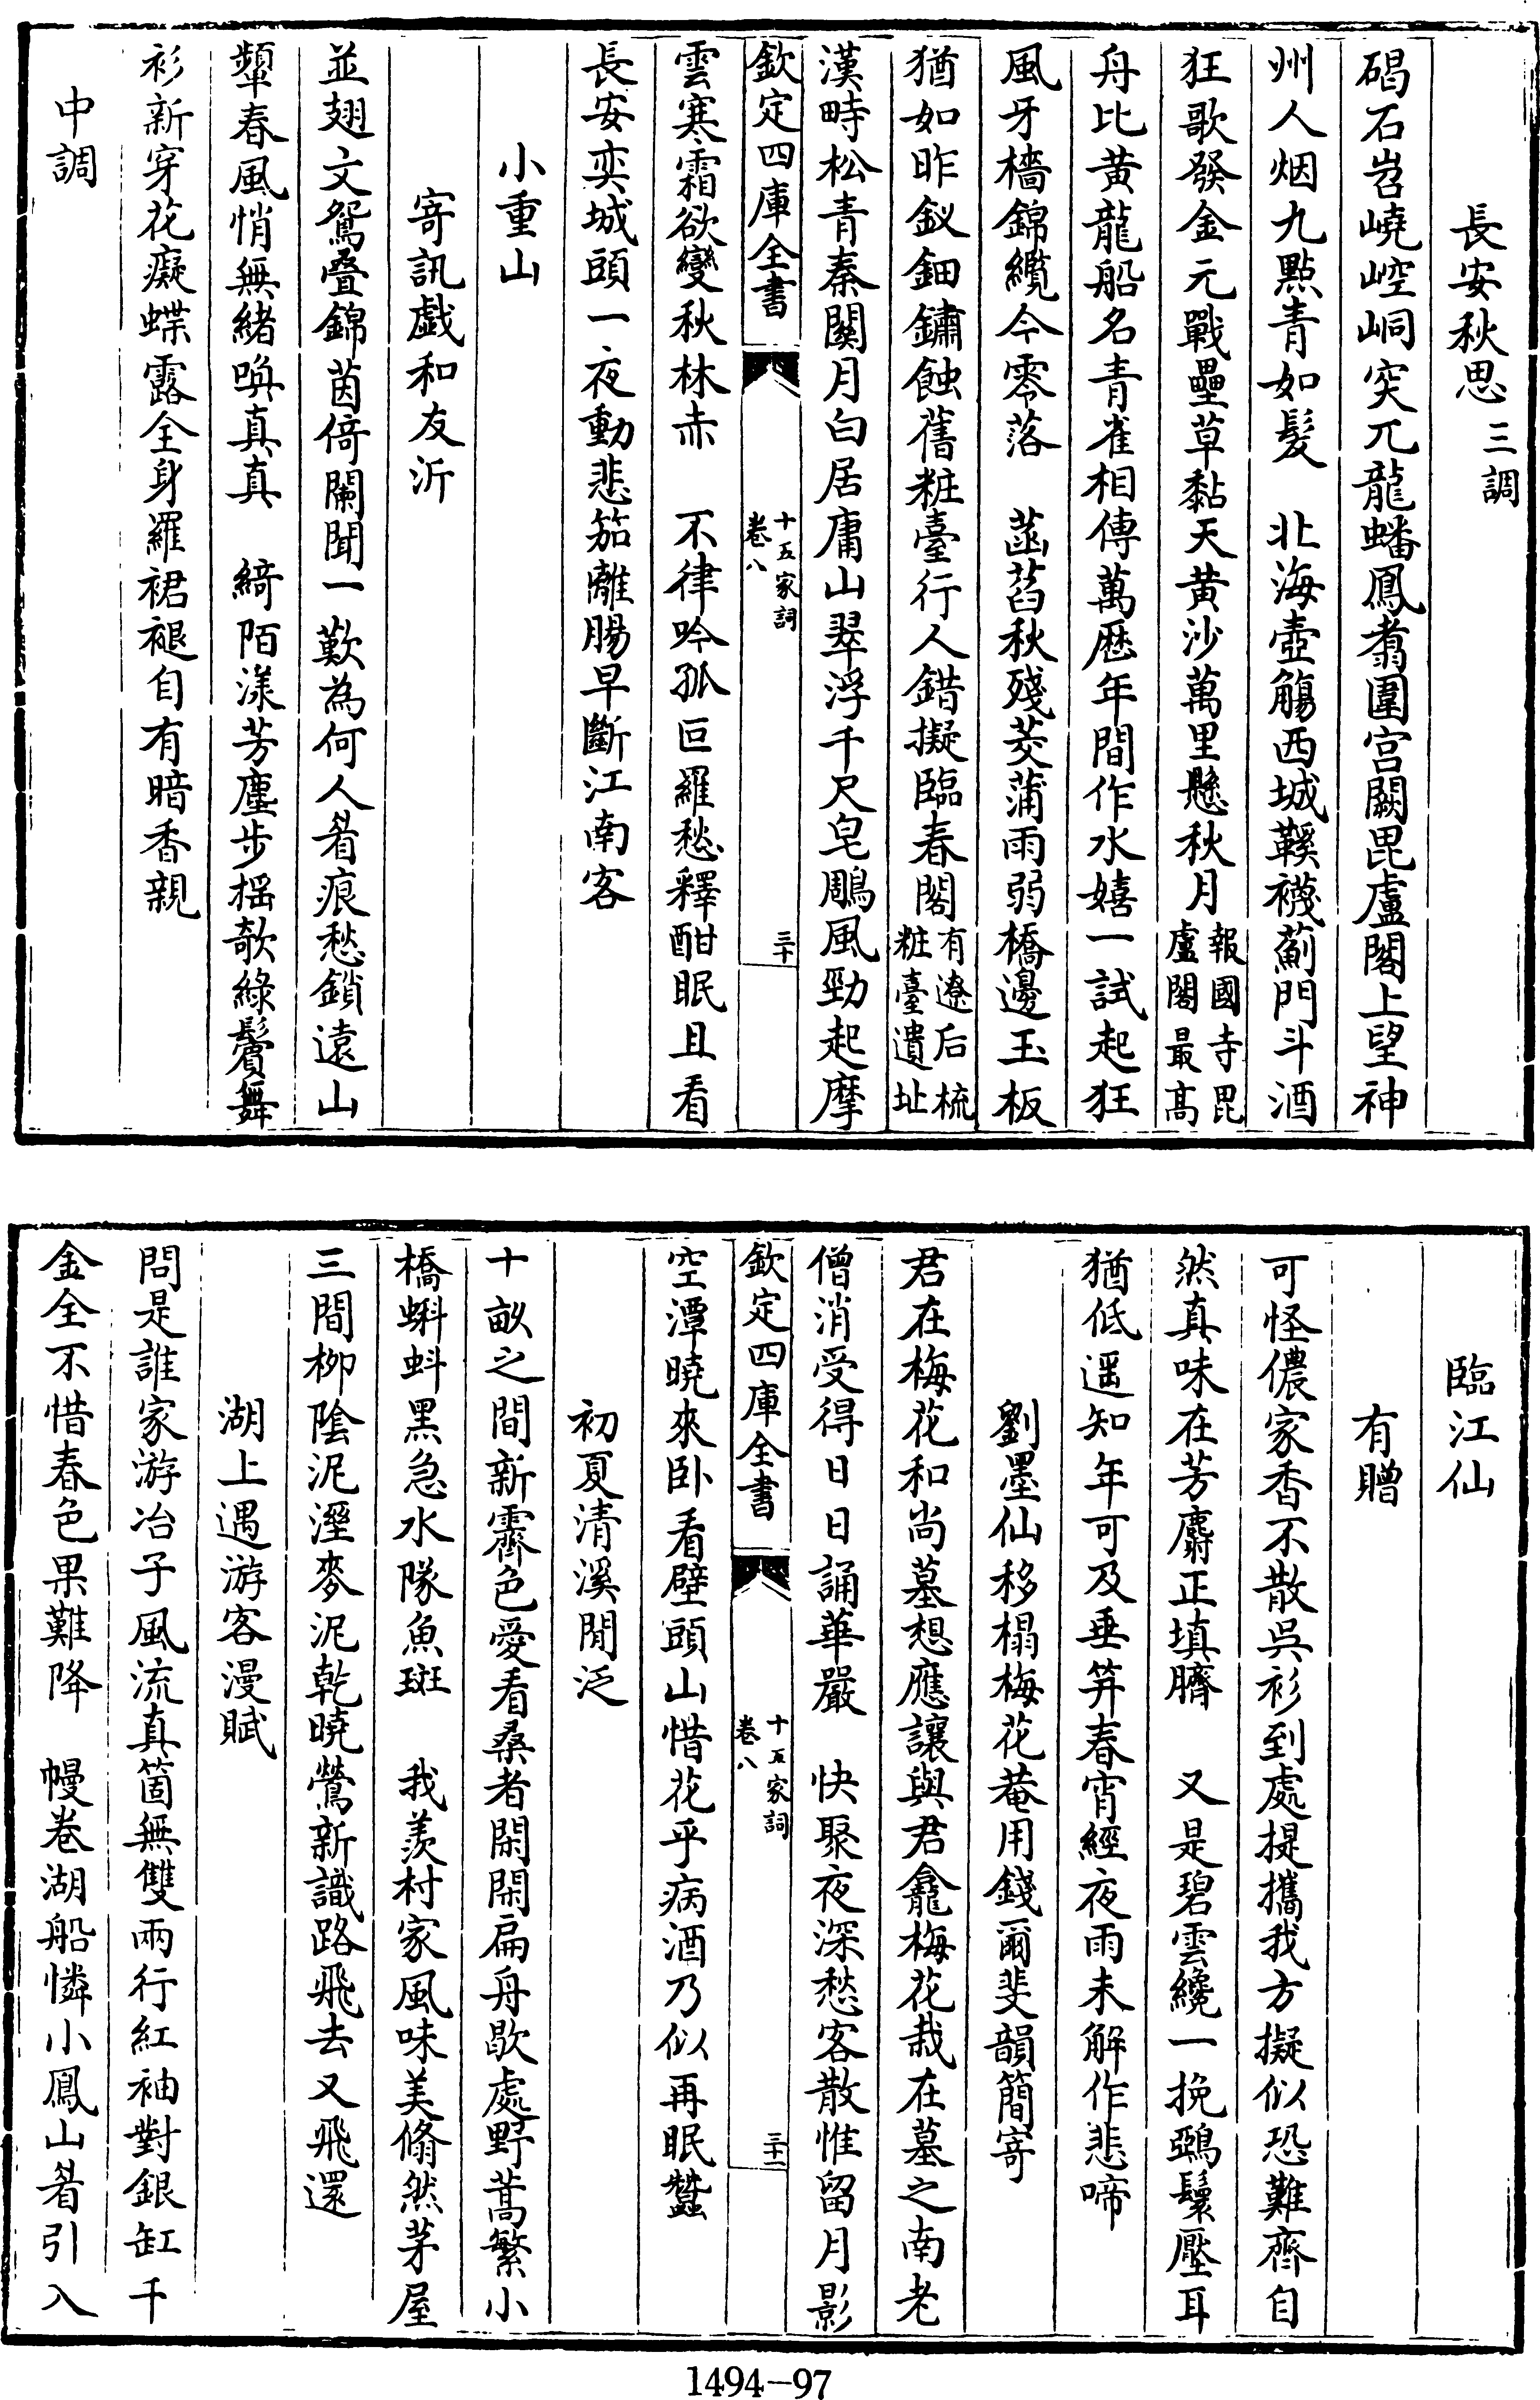 長安秋思 三調
碣石岧嶢崆峒突兀龍蟠鳳翥圍宫闕毘盧閣上望神
州人烟九點青如髮　北海壺觴西城鞵襪薊門斗酒
狂歌發金元戰壘草黏天黄沙萬里懸秋月 報國寺毘盧閣最髙
舟比黄龍船名青雀相傳萬厯年間作水嬉一試起狂
風牙檣錦纜今零落　菡萏秋殘茭蒲雨弱橋邊玉板
猶如昨釵鈿鏽蝕舊粧臺行人錯擬臨春閣 有遼后梳粧臺遺址
漢畤松青秦關月白居庸山翠浮千尺皂鵰風勁起摩
欽定四庫全書
十五家詞
卷八
三十
雲寒霜欲變秋林赤　不律吟孤叵羅愁釋酣眠且看
長安奕城頭一夜動悲笳離腸早斷江南客
小重山
寄訊戲和友沂
並翅文鴛疊錦茵倚闌聞一歎為何人眷痕愁鎖遠山
顰春風悄無緒喚真真　綺陌漾芳塵步摇欹綠鬢舞
衫新穿花癡蝶露全身羅裙褪自有暗香親
中調
臨江仙
有贈
可怪儂家香不散吳衫到處提攜我方擬似恐難齊自
然真味在芳麝正填臍　又是碧雲纔一挽鵶鬟壓耳
猶低遥知年可及垂笄春宵經夜雨未解作悲啼
劉墨仙移榻梅花菴用錢爾斐韻簡寄
君在梅花和尚墓想應讓與君龕梅花栽在墓之南老
僧消受得日日誦華嚴　快聚夜深愁客散惟留月影
欽定四庫全書
十五家詞
卷八
三十一
空潭曉來卧看壁頭山惜花乎病酒乃似再眠蠶
初夏清溪閒泛
十畝之間新霽色愛看桑者閑閑扁舟歇處野蒿繁小
橋蝌蚪黑急水隊魚斑　我羨村家風味美翛然茅屋
三間栁隂泥溼麥泥乾曉鶯新識路飛去又飛還
湖上遇游客漫賦
問是誰家游冶子風流真箇無雙兩行紅袖對銀缸千
金全不惜春色果難降　幔卷湖船憐小鳳山眷引入
1494-97